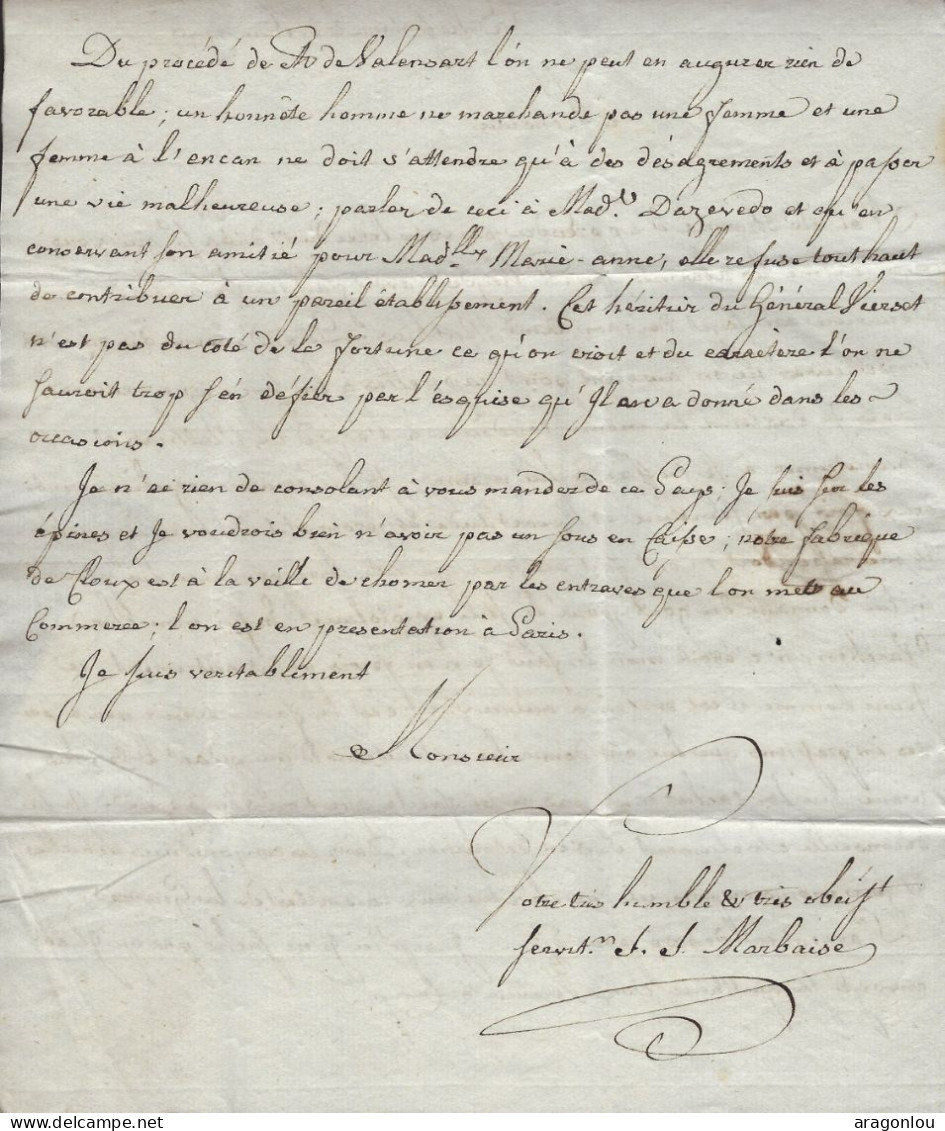 Du procédé de Mr de Valensart l'on ne peut en augurer rien de
favorable; un honnête homme ne marchande pas une femme et une
femme à l'encan ne doit s'attendre qu'à des désagrements et à passer
une vie malheureuse; parler de ceci à Mad.e Dazevedo et qu'en
conservant son amitié pour Mad.lle Marie-anne, elle refuse tout haut
de contribuer à un pareil établissement. Cet héritier du Général Vierset
n'est pas du coté de la fortune ce qu'on croit et du caractere l'on ne
sauroit trop s'én défier par l'ésquise qu'Il en a donné dans les
occasions.
Je n'ai rien de consolant à vous mander de ce Pays; Je suis sur les
épines et Je voudrois bien n'avoir pas un sous en Caisse; nôtre fabrique
de Cloux est à la veille de chomer par les entraves que l'on met au
Commerce; l'on est en presentation à Paris.
Je suis veritablement
Monsieur
Votre très humble & très obéisst
servit.r J. J. Marbaise
aragonlou